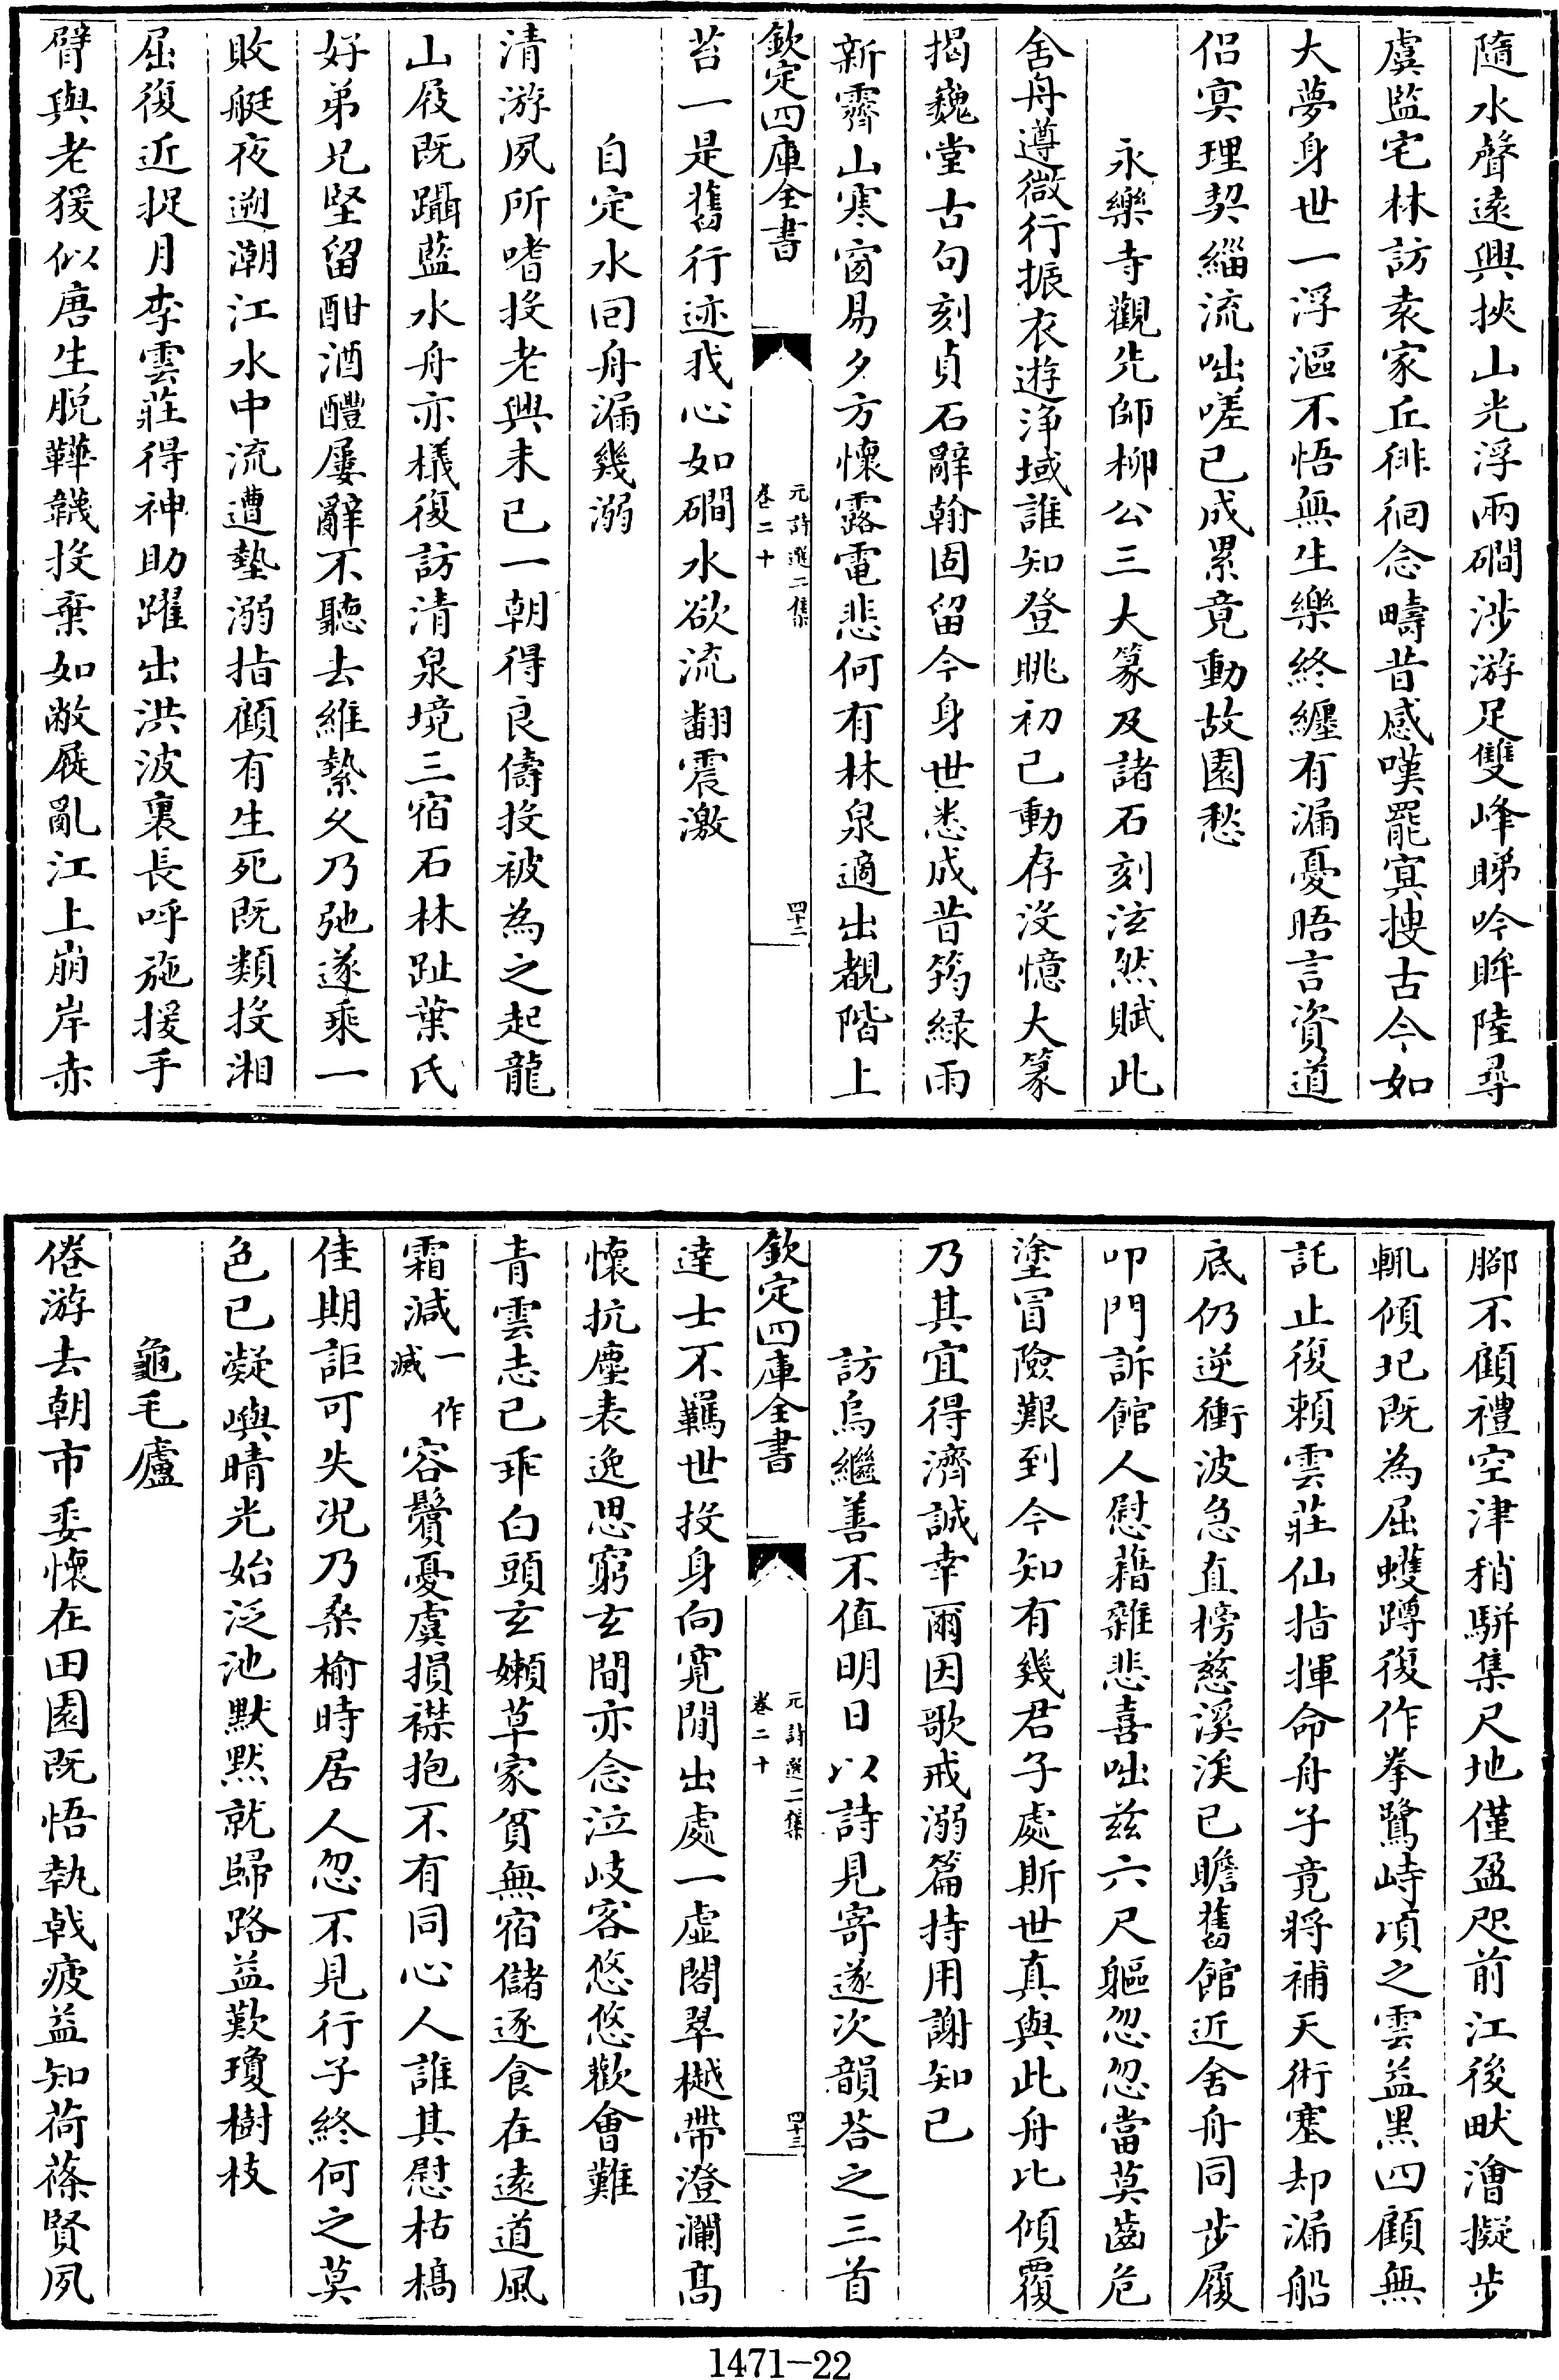 隨水聲遠興挾山光浮兩磵涉游足雙峰睇吟眸陸尋
虞監宅林訪袁家丘徘徊念疇昔感嘆罷寞搜古今如
大夢身世一浮漚不悟無生樂終纏有漏憂晤言資道
侶寞理契緇流咄嗟已成累竟動故園愁
永樂寺觀先師柳公三大篆及諸石刻泫然賦此
舍舟遵微行振衣遊浄域誰知登眺初已動存沒憶大篆
揭巍堂古句刻貞石辭翰固留今身世悉成昔筠緑雨
新霽山寒窗易夕方懷露電悲何有林泉適出覩階上
欽定四庫全書
元詩選二集
卷二十
四十二
苔一是舊行迹我心如磵水欲流翻震激
自定水回舟漏幾溺
清游夙所嗜投老興未已一朝得良儔投被為之起龍
山屐既躡藍水舟亦檥復訪清泉境三宿石林趾葉氏
好弟兄堅留酣酒醴屢辭不聽去維縶久乃弛遂乘一
敗艇夜遡潮江水中流遭墊溺指顧有生死既類投湘
屈復近捉月李雲莊得神助躍出洪波裏長呼施援手
臂與老猨似唐生脱鞾韈投棄如敝屣亂江上崩岸赤
腳不顧禮空津稍駢集尺地僅盈咫前江後畎澮擬步
輒傾圮既為屈蠖蹲復作拳鷺峙項之雲益黑四顧無
託止復頼雲莊仙指揮命舟子竟將補天術塞却漏船
底仍逆衝波急直榜慈溪涘已瞻舊館近舍舟同步履
叩門訴館人慰藉雜悲喜咄兹六尺軀忽忽當莫齒危
塗冒險艱到今知有幾君子處斯世真與此舟比傾覆
乃其宜得濟誠幸爾因歌戒溺篇持用謝知已
訪烏繼善不值明日以詩見寄遂次韻荅之三首
欽定四庫全書
元詩選二集
卷二十
四十三
達士不羈世投身向寛閒出處一虛閣翠樾帶澄瀾髙
懷抗塵表逸思窮玄間亦念泣岐客悠悠歡會難
青雲志已乖白頭玄嬾草家貧無宿儲逐食在遠道風
霜減一作减容鬢憂虞損襟抱不有同心人誰其慰枯槁
佳期詎可失况乃桑榆時居人忽不見行子終何之莫
色已凝嶼晴光始泛池默默就歸路益歎瓊樹枝
龜毛廬
倦游去朝市委懷在田園既悟執戟疲益知荷蓧賢夙
1471-22